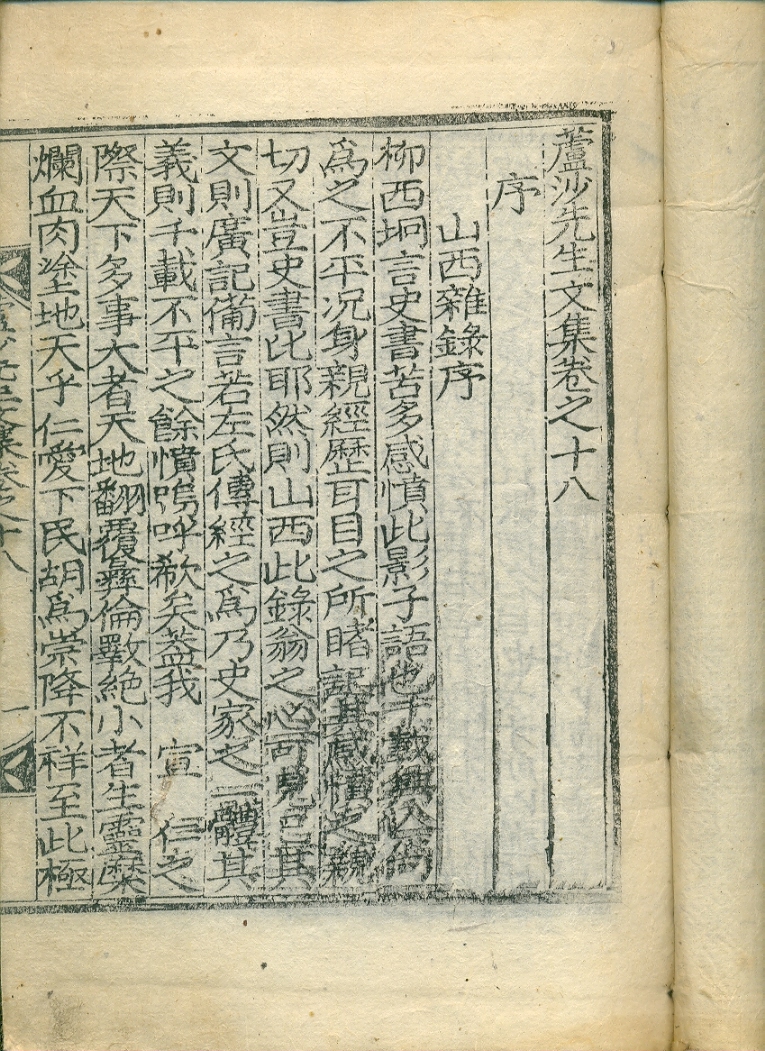 蘆沙先生文集卷之十八
序
山西雜錄序
柳西坰言史書苦多感憤此影子語也千載與人猶
爲之不平况身親經歷耳目之所睹記其感憤之
切又豈史書比耶然則山西此錄翁之心可見已其
文則廣記備言若左氏傳經之爲乃史家之一體其
義則千載不平之餘憤嗚呼欷矣蓋我 宣 仁之
際天下多事大者天地翻覆彝倫斁絕小者生靈糜
爛血肉塗地天乎仁愛下民胡爲崇降不祥至此極
蘆沙先生文集卷之十八 一